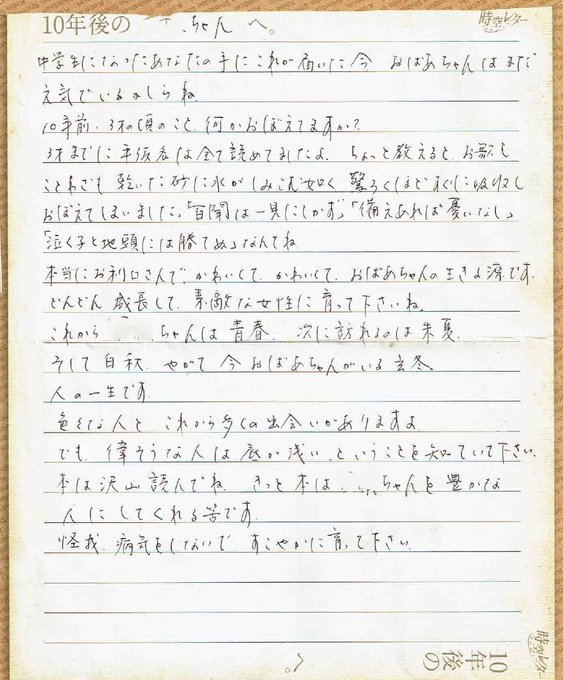 10年後の ちゃん へ。
時空レター
中学生になったあなたの手にこれが届いた今 おばあちゃんはまだ
元気でいるかしらね
10年前、3才の頃のこと 何かおぼえてますか?
3才までに平仮名は全て読めてましたよ ちょっと教えると お歌も
ことわざも 乾いた砂に水がしみこむ如く 驚ろくほどすぐに吸収し
おぼえてしまいました。「百聞は一見にしかず」「備えあれば憂いなし」
「泣く子と地頭には勝てぬ」なんてね
本当にお利口さんで、かわいくて、かわいくて、おばあちゃんの生きる源です
どんどん成長して、素敵な女性に育って下さいね。
これから ちゃんは青春 次に訪れるのは朱夏
そして白秋 やがて 今おばあちゃんがいる玄冬。
人の一生です
色々な人と これから多くの出会いがありますよ
でも、偉そうな人は底が浅い、ということを知っていて下さい
本は沢山読んでね きっと本は ちゃんを豊かな
人にしてくれる筈です
怪我、病気をしないで すこやかに育って下さい
時空レター
10年後の
へ。